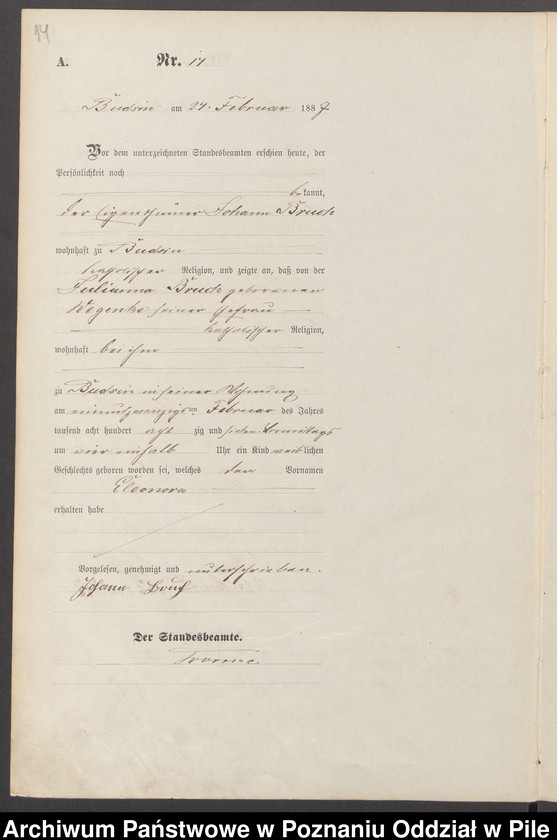 14
A. Nr. 14
Budsin am 24. Februar 1887
Vor dem unterzeichneten Standesbeamten erschien heute, der
Persönlichkeit nach
bekannt,
der Eigenthümer Johann Bruch
wohnhaft zu Budsin
katholischer Religion, und zeigte an, daß von der
Julianna Bruch geborenen
Wegenke seiner Ehefrau
katholischer Religion,
wohnhaft bei ihm
zu Budsin in seiner Wohnung
am einundzwanzigsten Februar des Jahres
tausend acht hundert acht zig und sieben Vormittags
um vier einhalb Uhr ein Kind weiblichen
Geschlechts geboren worden sei, welches den Vornamen
Eleonora
erhalten habe
Vorgelesen, genehmigt und unterschrieben.
Johann Bruch
Der Standesbeamte.
Archiwum Państwowe w Poznaniu Oddział w Pile